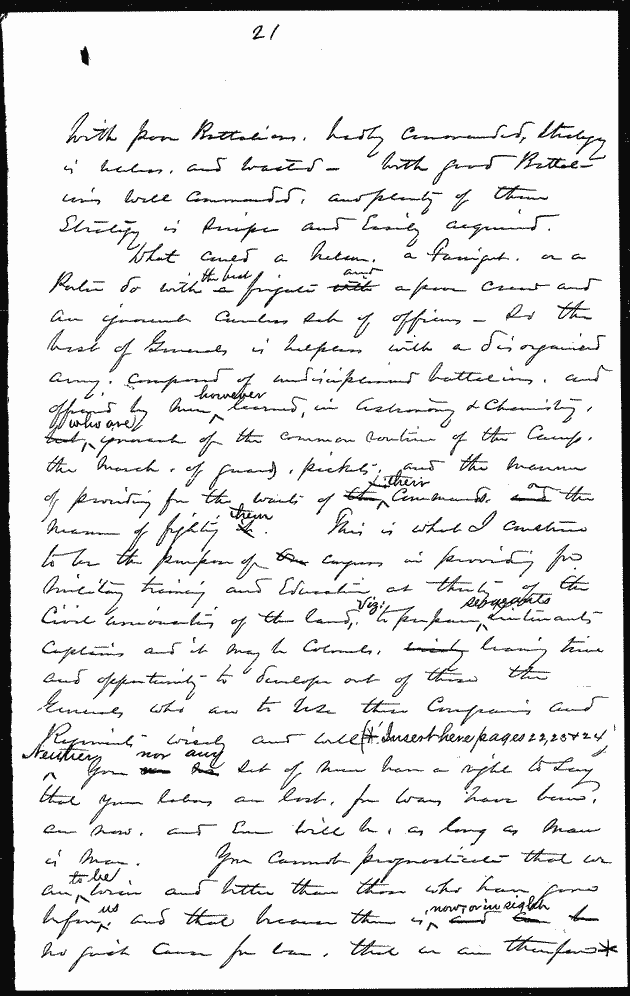 21
With poor Battalions, badly commanded, strategy
is useless, and wasted — With good Battal-
ions well commanded, and plenty of them
Strategy is simple and easily acquired.
What could a Nelson, a Farragut, or a
Porter do with the best frigate and a poor crew and
an ignorant careless set of officers — So the
best of Generals is helpless with a disorganised
army, composed of undisciplined battalions, and
officered by men however learned, in Astronomy & Chemistry,
who are ignorant of the common routine of the Camp,
the March, of guards, pickets, and the manner
of providing for the wants of their Commands, and the
manner of fighting them. This is what I construe
to be the purpose of Congress in providing for
military training and Education at the
Civil Universities of the land, viz: to prepare sergeants, lieutenants
Captains and it may be Colonels, leaving time
and opportunity to develope out of these the
Generals who are to use these Companies and
Regiments wisely and well (* Insert here pages 22, 23 & 24)
Neither you nor any set of men have a right to say
that your labors are lost, for wars have been,
are now, and ever will be, as long as man
is man. You cannot prognosticate that we
are to be wiser and better than those who have gone
before us, and that because there is now, or in sight
no good cause for war, that we are therefore *